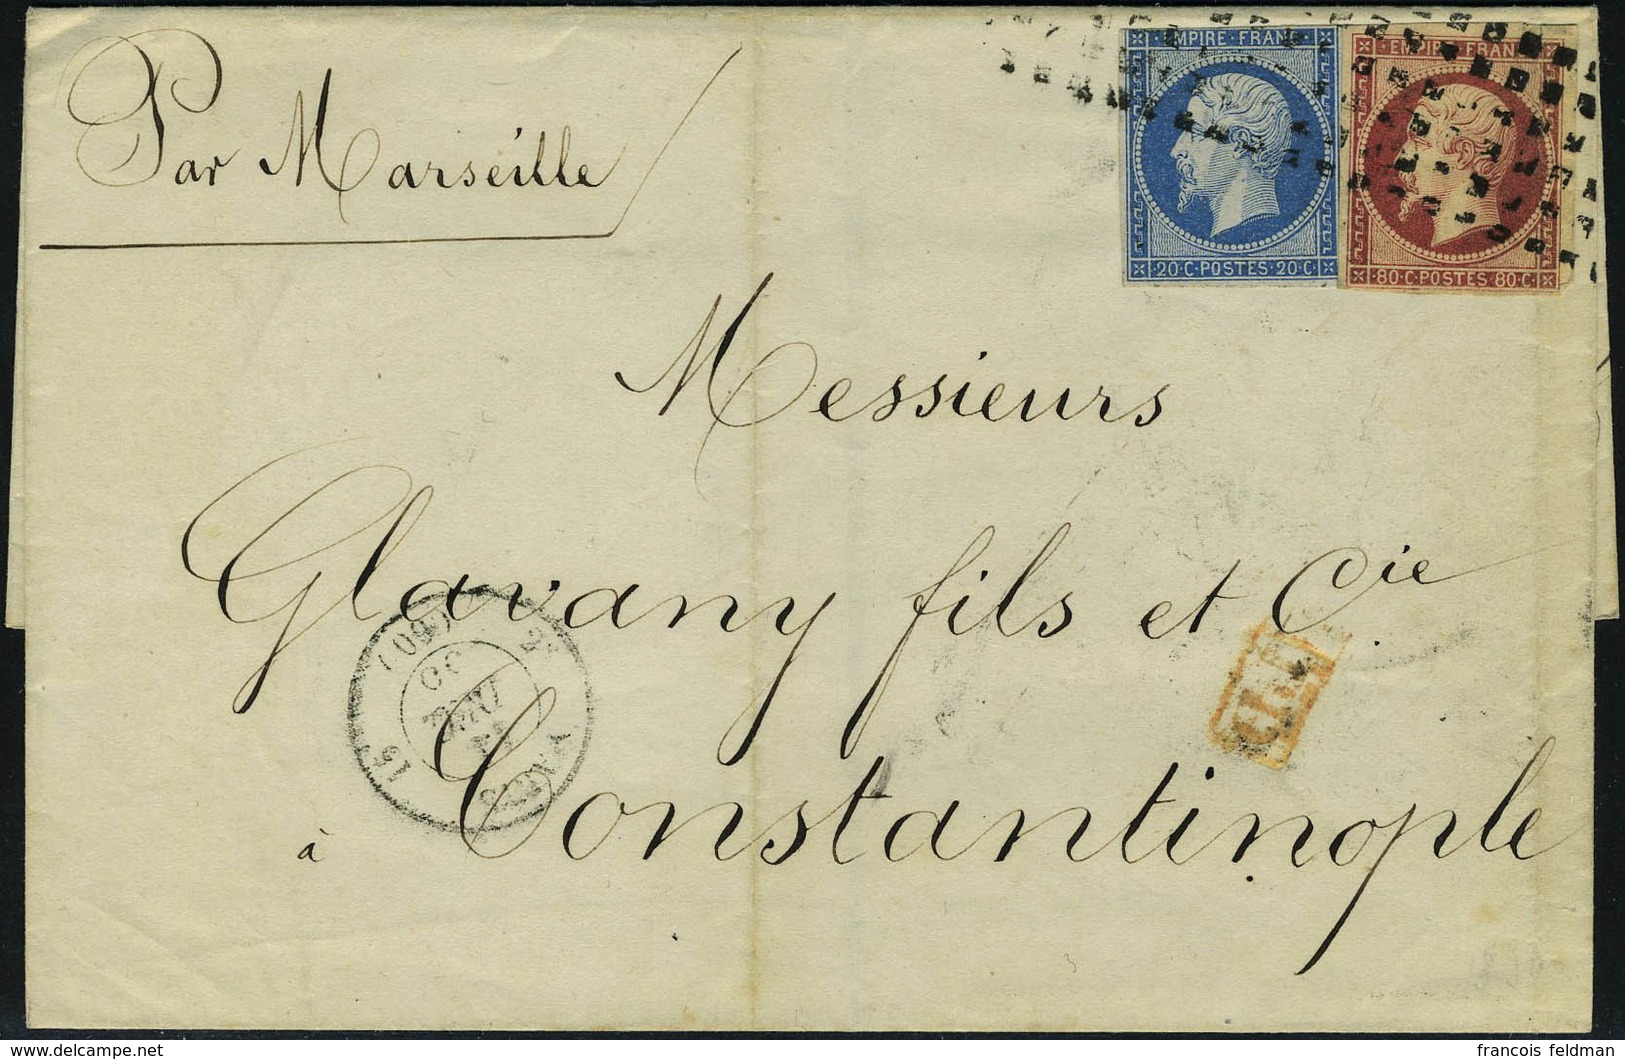 Par Marseille
EMPIRE FRANC
20·C·POSTES·20·C·
EMPIRE FRAN
80·C·POSTES·80·C·
Messieurs
Glavany fils et Cie.
PARIS
(60)
P.D.
à Constantinople
francois feldman